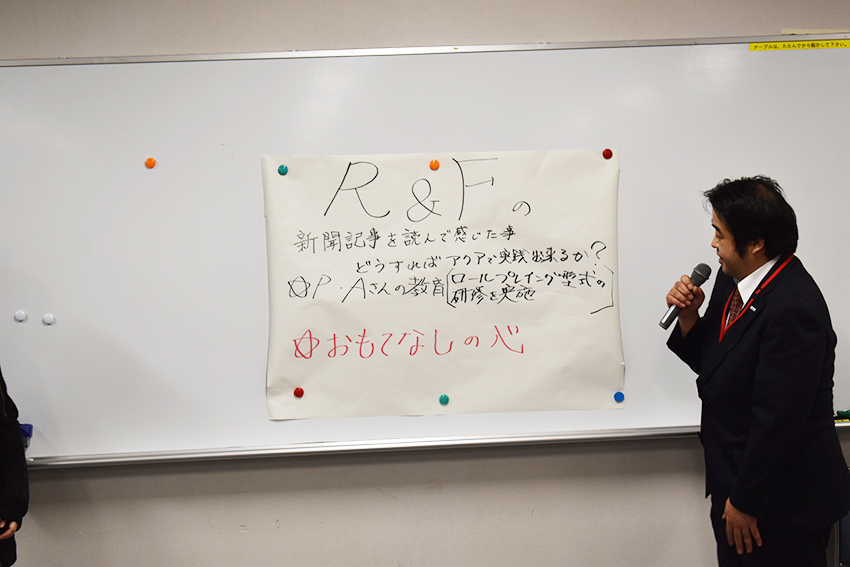 テーブルは、たたんでから動かして下さい。
R&Fの
新聞記事を読んで感じた事
どうすればアクアで実践出来るか?
☆P・Aさんの教育[ロールプレイング型式の
研修を実施]
☆おもてなしの心